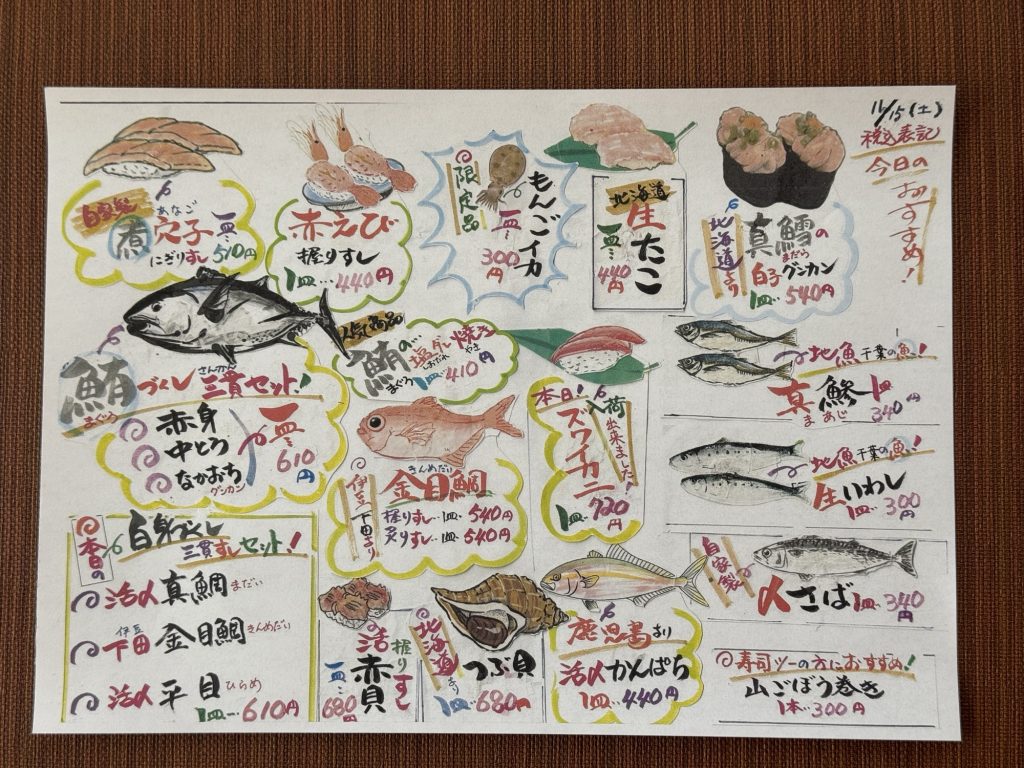 11/15(土)
税込表記
今日の
おすすめ!
自家製
煮穴子
あなご
にぎりすし
一皿… 510円
赤えび
握りすし
1皿…440円
限定品
もんごイカ
一皿…
300円
北海道
生たこ
一皿…
440円
北海道より
真鱈の
まだら
白子グンカン
1皿…540円
鮪づくし
まぐろ
さんかん
三貫セット!
赤身
中とろ
なかおち
グンカン
一皿…
610円
人気商品
鮪の…
まぐろ
塩ダレ焼き
しおだれ やき
1皿…410円
きんめだい
金目鯛
伊豆下田より
握りすし…1皿…540円
炙りすし…1皿…540円
本日!入荷出来ました!
ズワイカニ
1皿…720円
地魚 千葉の魚!
真鯵
まあじ
1皿
340円
地魚 千葉の魚!
生いわし
1皿…300円
自家製
〆さば
1皿…340円
本日の
白身づくし
三貫すしセット!
活〆真鯛 まだい
伊豆
下田 金目鯛 きんめだい
活〆平目 ひらめ
1皿…610円
活赤貝
握りすし
一皿…
680円
北海道より
つぶ貝
1皿…680円
鹿児島より
活〆かんぱち
1皿…440円
寿司ツーの方におすすめ!
山ごぼう巻き
1本…300円